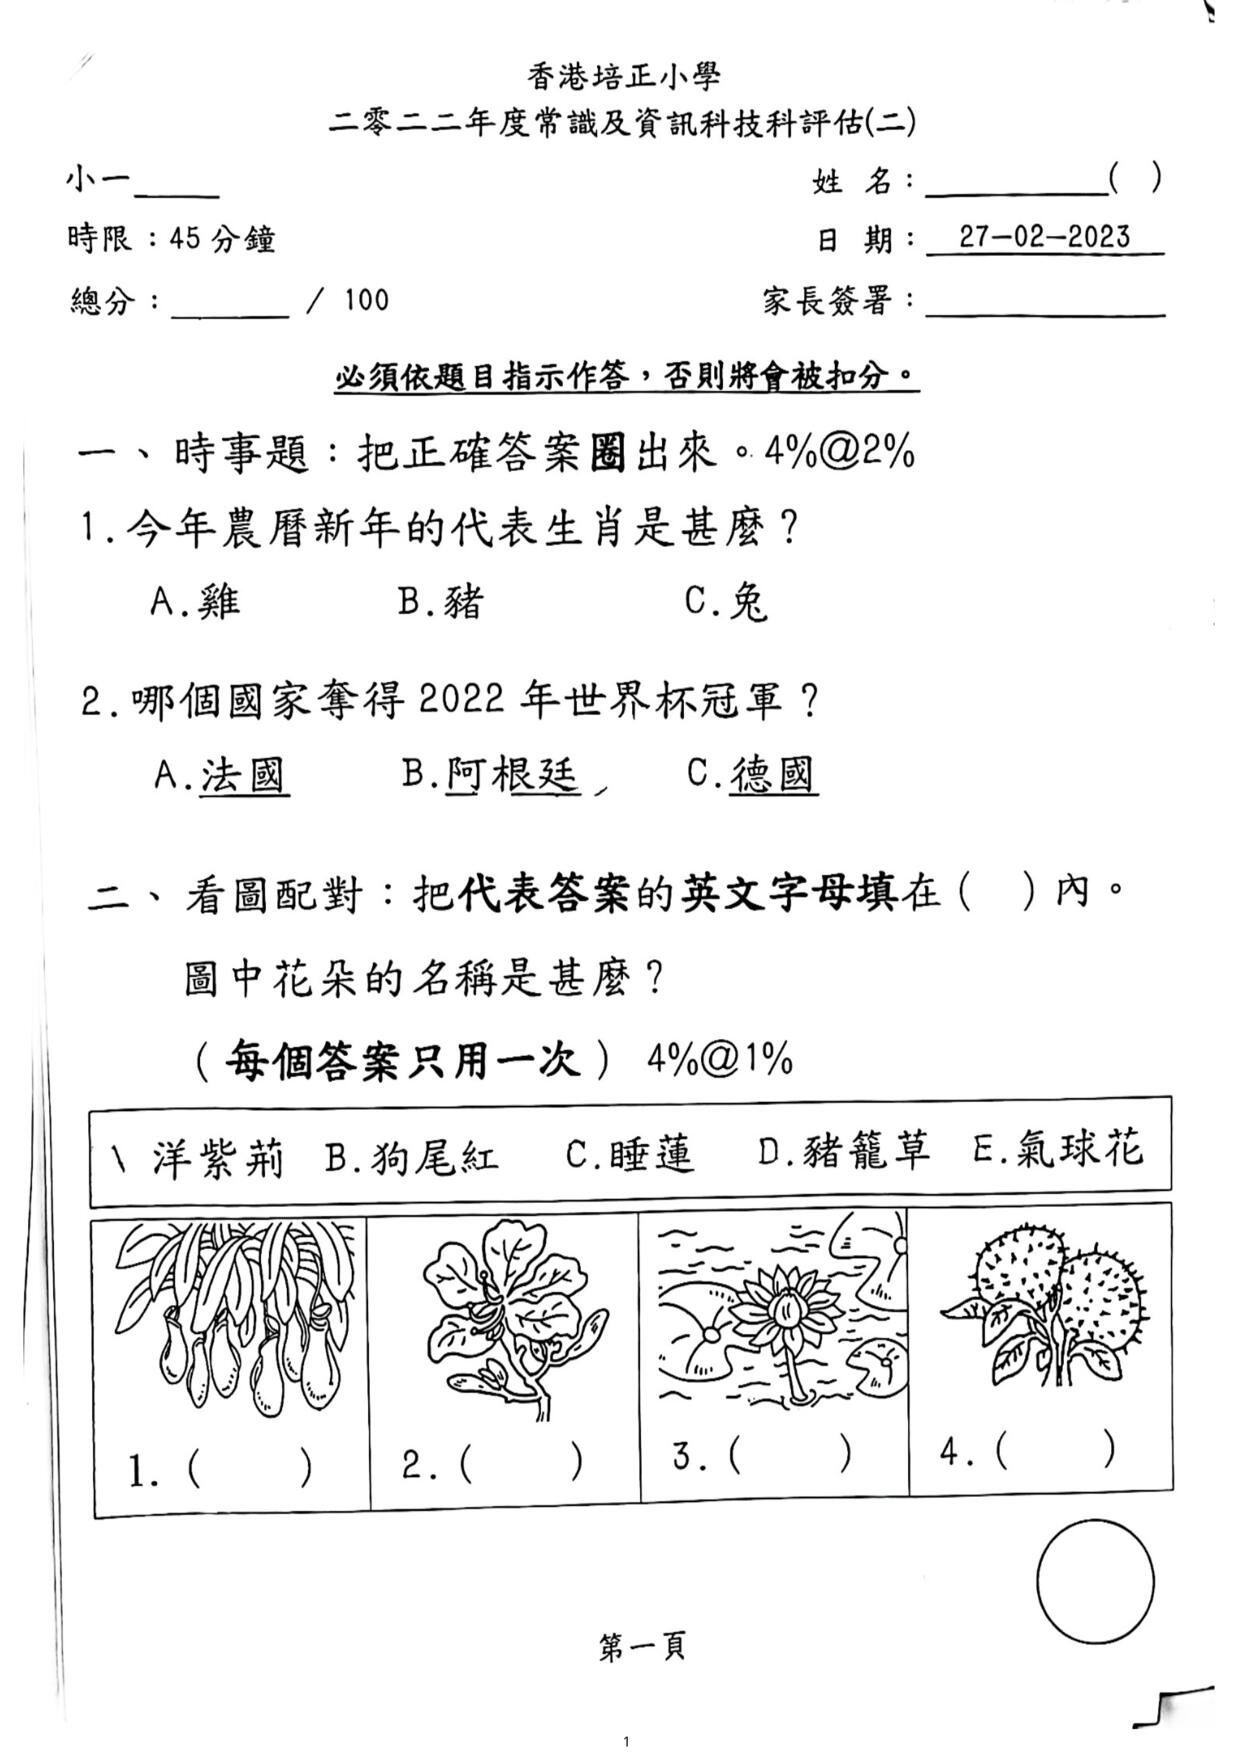 香港培正小學
二零二二年度常識及資訊科技科評估(二)
小一_____ 姓 名：___________( )
時限：45 分鐘 日 期： 27-02-2023
總分：_______ / 100 家長簽署：______________
必須依題目指示作答，否則將會被扣分。
一、時事題：把正確答案圈出來。4%@2%
1.今年農曆新年的代表生肖是甚麼？
A.雞 B.豬 C.兔
2.哪個國家奪得 2022 年世界杯冠軍？
A.法國 B.阿根廷 C.德國
二、看圖配對：把代表答案的英文字母填在（ ）內。
圖中花朵的名稱是甚麼？
（每個答案只用一次） 4%@1%
洋紫荊 B.狗尾紅 C.睡蓮 D.豬籠草 E.氣球花
1.( ) 2.( ) 3.( ) 4.( )
第一頁
1